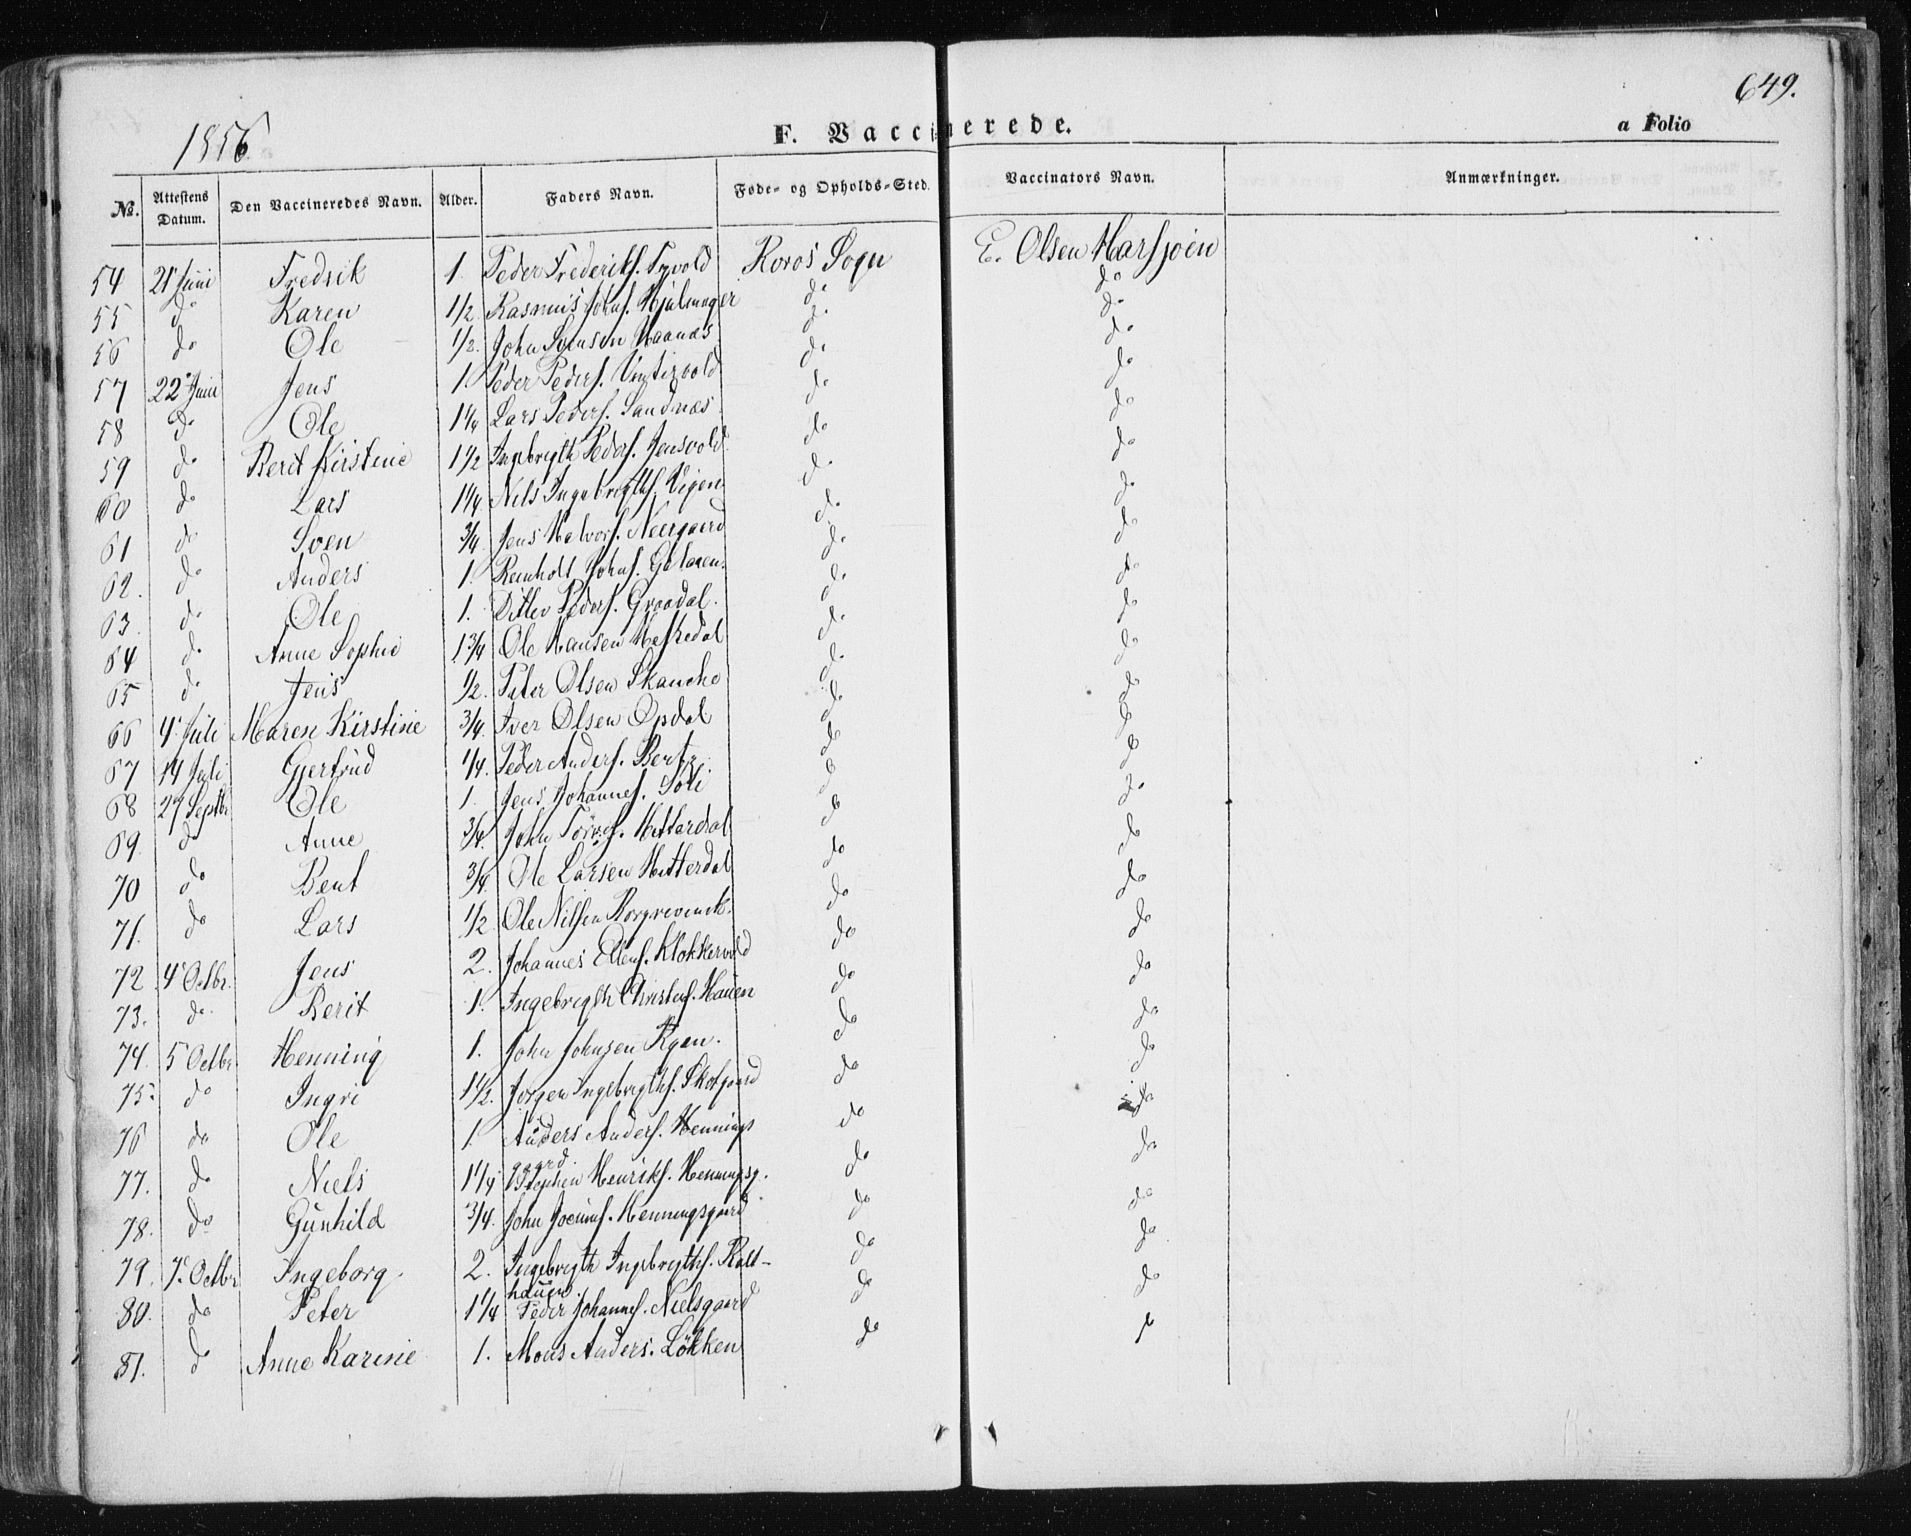 649.
1856
F. Vaccinerede.
a Folio
No. Attestens Datum. Den Vaccineredes Navn. Alder. Faders Navn. Føde- og Opholds-Sted. Vaccinators Navn. Anmærkninger.
54 21 Juni Fredrik 1. Peder Frederiks. Tyvold Roros Sogn E. Olsen Harsjoen
55 do Karen 1/2. Rasmus Johns. Hjulmager do do
56 do Ole 1/2. John Svensen Haanæs do do
57 22 Juni Jens 1. Peder Peders. Vintervold do do
58 do Ole 1 1/4 Lars Peders. Sandnæs. do do
59 do Berit Kirstine 1 1/2 Ingebrigth Peders. Jensvold. do do
60 do Lars 1 1/4 Nils Ingebrigths. Vigen do do
61 do Sven 3/4. Jens Halvors. Neergaard do do
62. do Anders 1. Reinholt Johns. Galaaen. do do
63. do Ole 1. Ditlev Peders. Graadal. do do
64 do Anne Sophie 1 3/4 Ole Hansen Heskedal do do
65 do Jens 1/2. Peter Olsen Skancke do do
66 4 Juli Maren Kirstine 3/4. Iver Olsen Opdal do do
67 14 Juli Gjertrud 1/4. Peder Anders. do do
68 27 Septbr Ole 1. Jens Johannes. Soli do do
69. do Anne 3/4. John Hitterdal do do
70 do Bent 3/4. Ole Larsen Hitterdal do do
71. do Lars 1/2 Ole Nilsen do do
72 4 Octbr. Jens 2. Johannes Ellens. Klokkervold do do
73. do Berit 1. Ingebrigth Christens. Hauen do do
74. 5 Octbr. Henning 1. John Johnsen Ryen. do do
75. do Ingri 1 1/2. Jorgen Ingebrigths. Skotgaard do do
76 do Ole 1. Anders Anders. Hennings do do
gaard.
77. do Niels 1 1/4 Stephen Henriks. Henningsg. do do
78. do Gunhild 3/4. John Joenns. Henningsgaard do do
79. 7 Octbr Ingeborg. 2. Ingebrigth Ingebrigths. Kold- do do
hauen.
80. do Peter 1 1/4 Peder Johannes. Nielsgaard do do
81. do Anne Karine 1. Mons Anders. Løkken do do